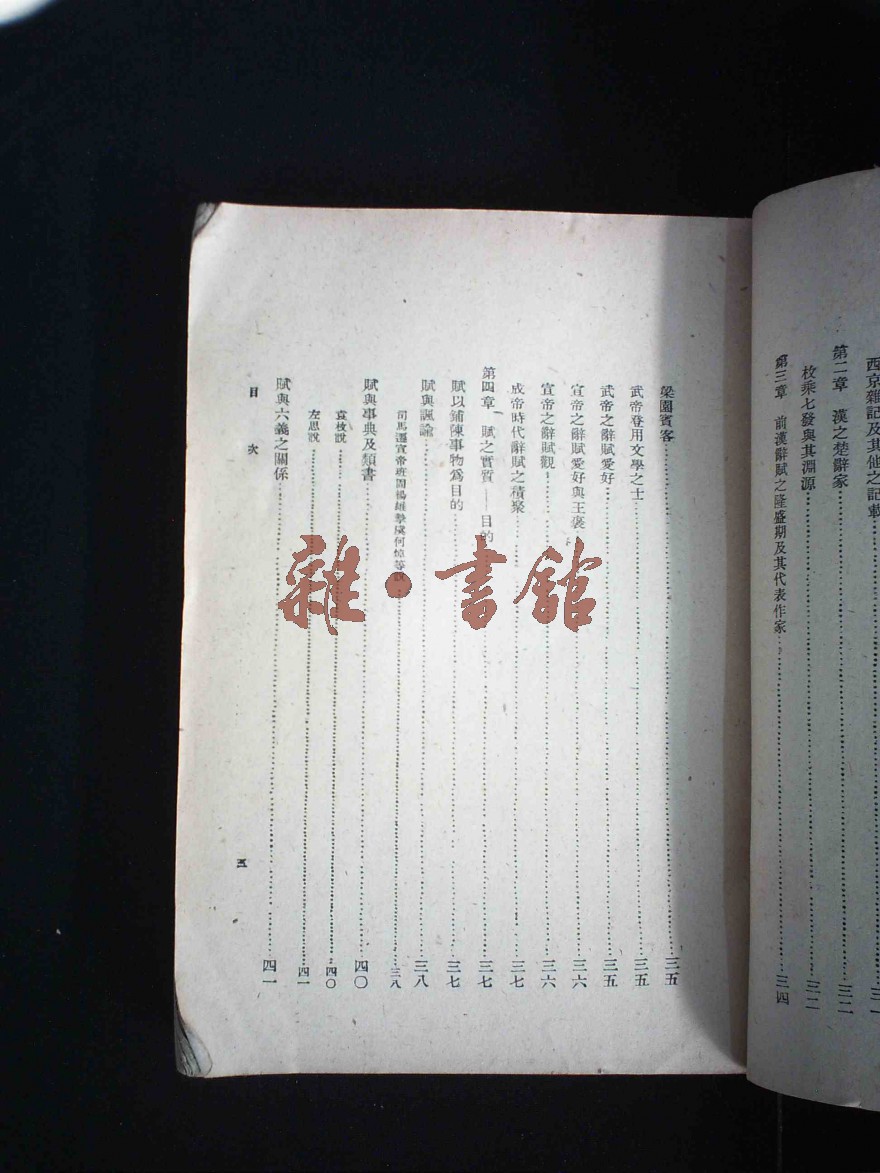 西京雜記及其他之記載……三一
第二章　漢之楚辭家……三二
枚乘七發與其淵源……三二
第三章　前漢辭賦之隆盛期及其代表作家……三四
梁園賓客……三五
武帝登用文學之士……三五
武帝之辭賦愛好……三五
宣帝之辭賦愛好與王褒……三六
宣帝之辭賦觀……三六
成帝時代辭賦之積聚……三七
第四章　賦之實質——目的……三七
賦以鋪陳事物爲目的……三七
賦與諷諭……三八
司馬遷宣帝班固楊雄摯虞何焯等說……三八
賦與事典及類書……四〇
袁枚說……四〇
左思說……四一
賦與六義之關係……四一
目次
五
雜·書館